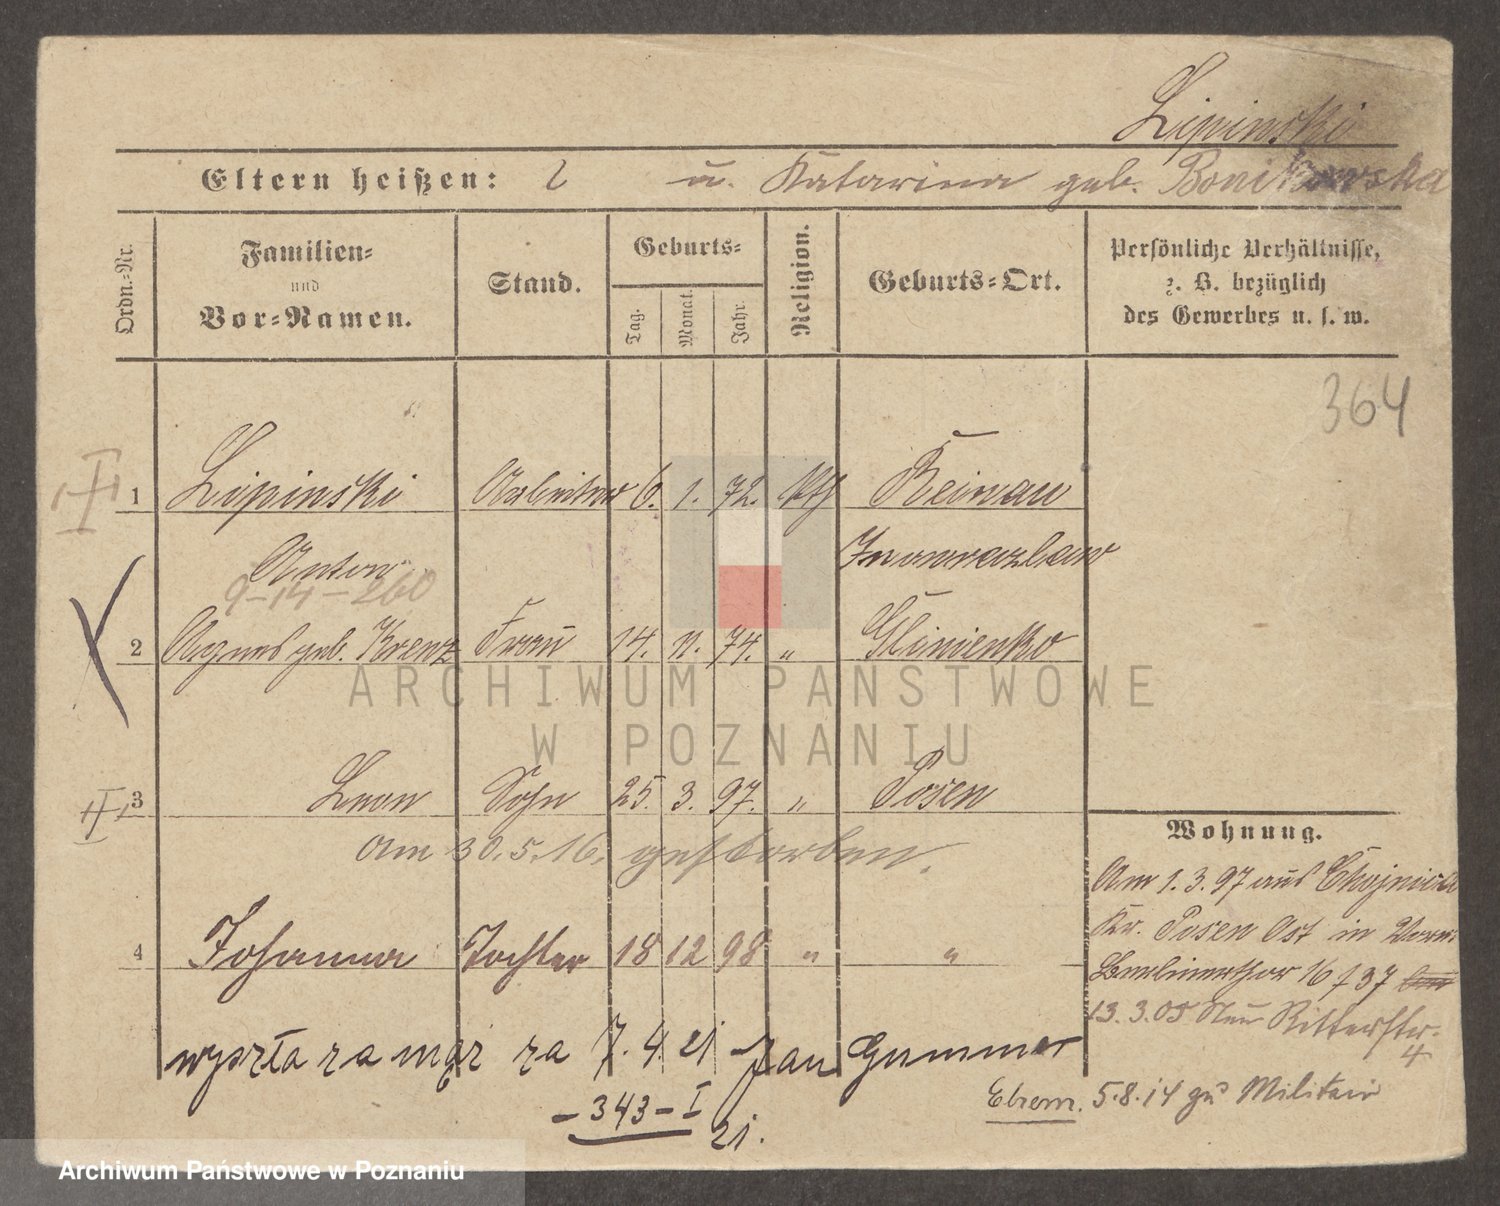 Lipinski
Eltern heißen: u. Katarina geb. Bonikowska
Ordn.-Nr.
Familien-
und
Vor-Namen.
Stand.
Geburts-
Tag.
Monat.
Jahr.
Religion.
Geburts-Ort.
Persönliche Verhältnisse,
z. B. bezüglich
des Gewerbes u. s. w.
364
1 Lipinski Arbeiter 6. 1. 72. kth
Anton Inowrazlaw
9-14-260
2 Agnes geb. Krenz Frau 14. 11. 74. " Glinienko
ARCHIWUM PAŃSTWOWE
W POZNANIU
3 Leon Sohn 25. 3. 97. " Posen
am 30.5.16. gestorben.
4 Johanna Tochter 18 12 98 " "
Wohnung.
Am 1.3.97 aus
Kr. Posen Ost in
Berlinerthor 16/37
13.3.05 Neue Ritterstr.
4
wyszła za mąż za 7.4.21 Jan Gummer
-343-I
21.
Ehem. 5.8.14 zu Militair
Archiwum Państwowe w Poznaniu